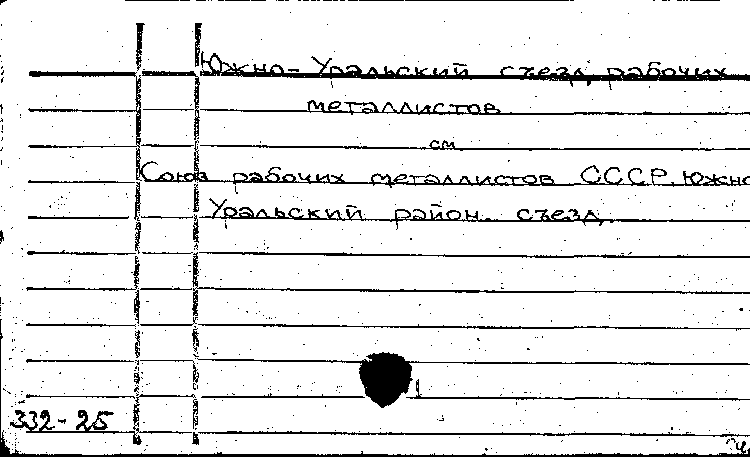 Южно-Уральский съезд рабочих
металлистов
см
Союз рабочих металлистов СССР. Южно
Уральский район. съезд.
332-25